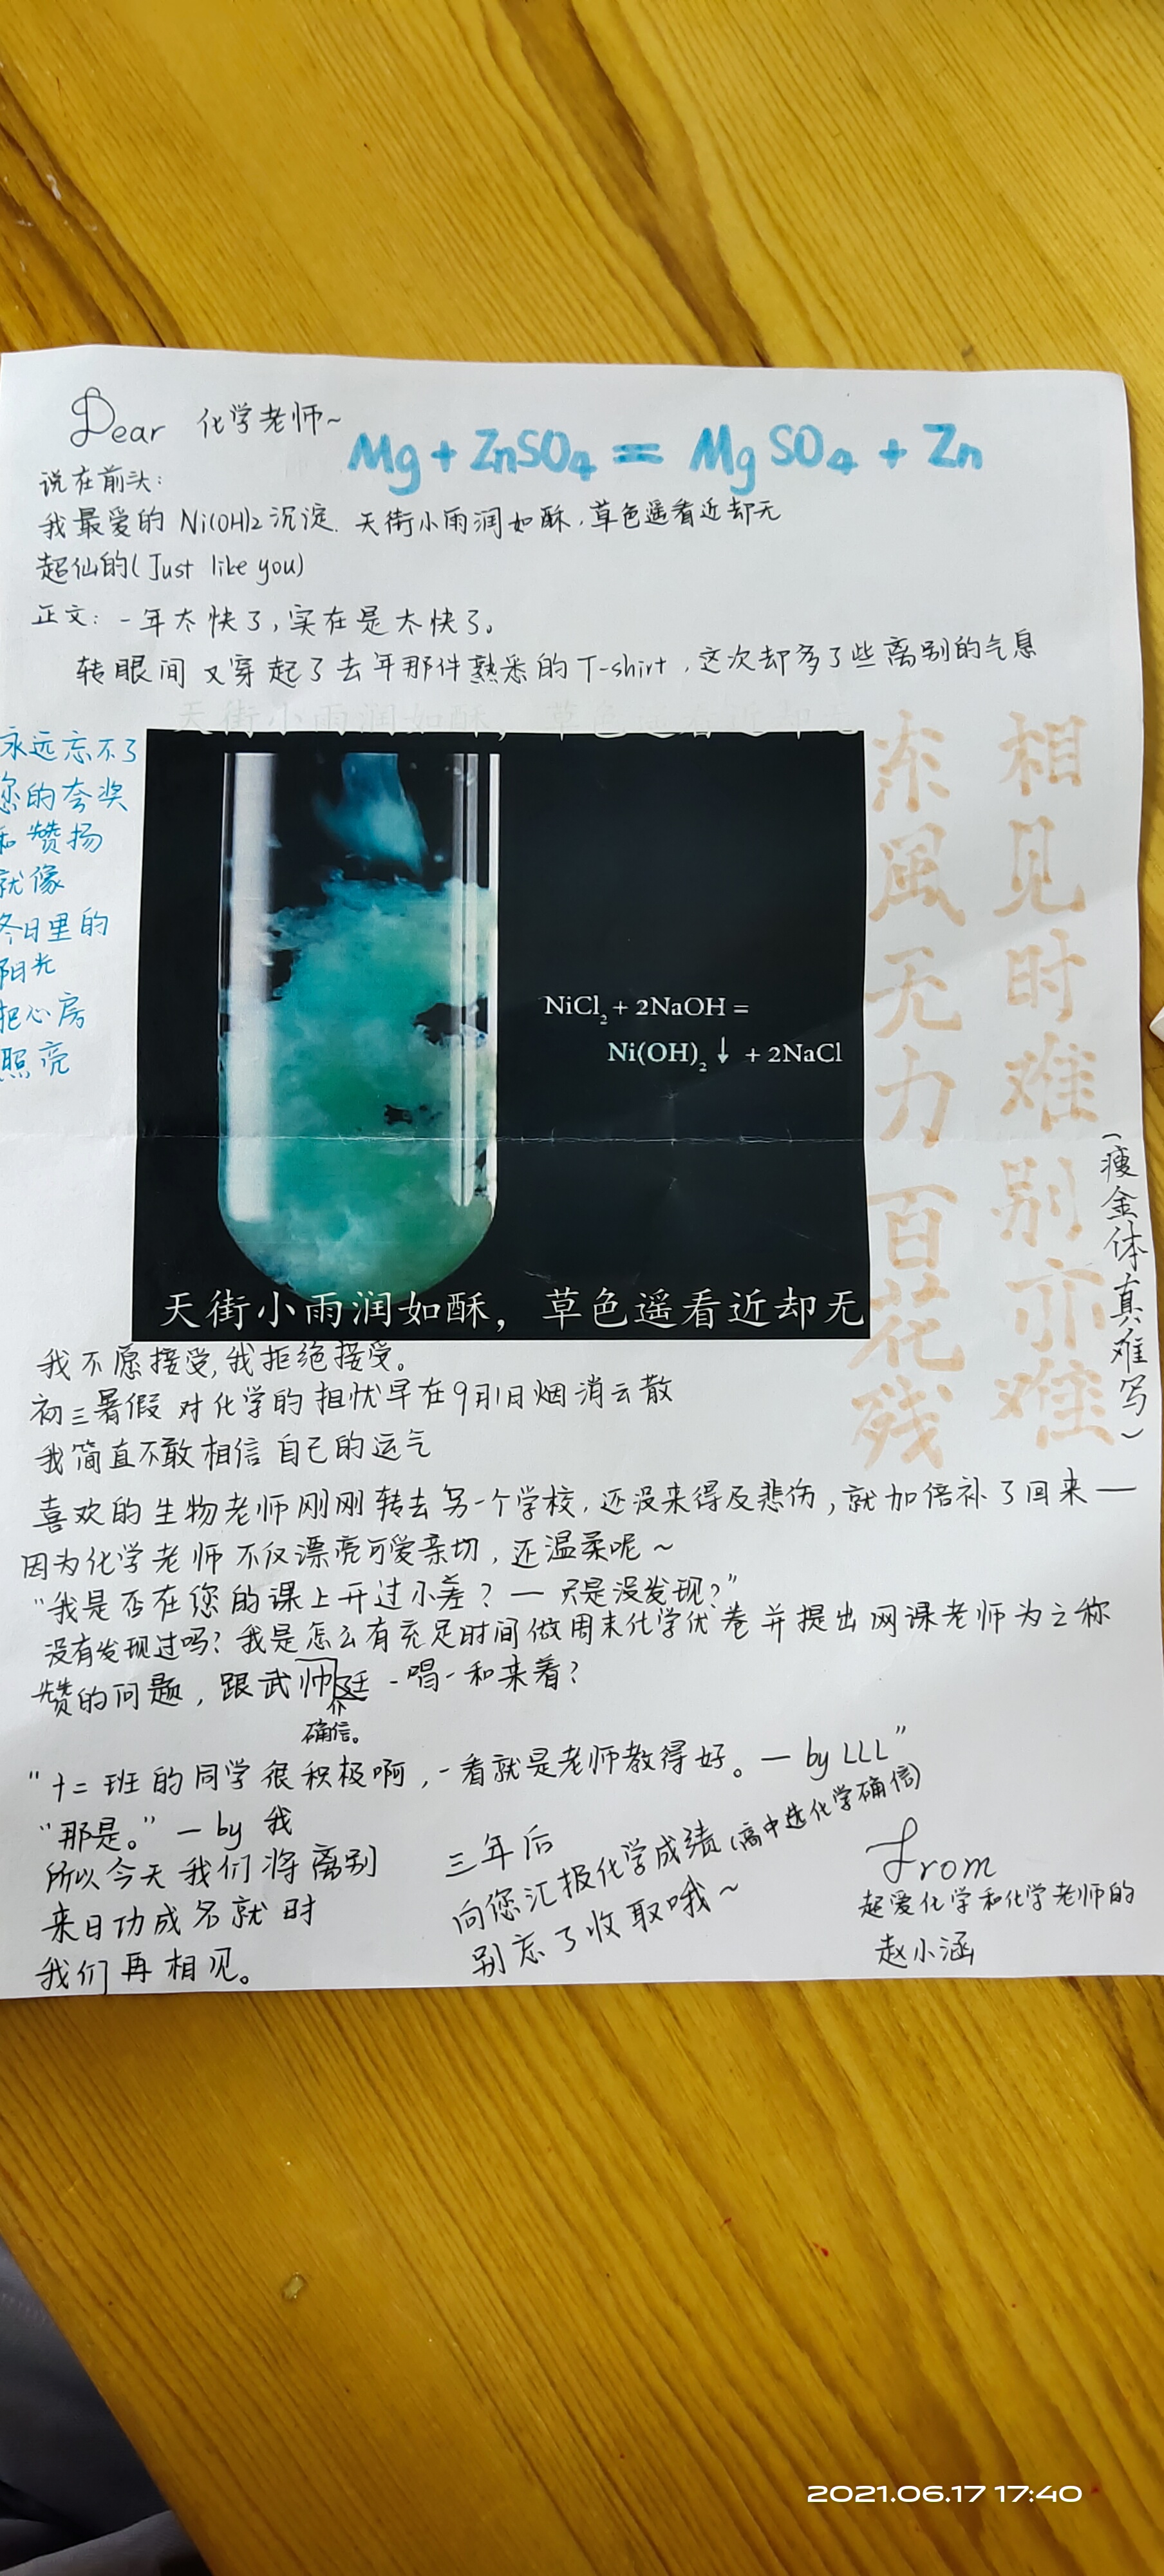 Dear 化学老师~
Mg + ZnSO₄ = MgSO₄ + Zn
说在前头:
我最爱的 Ni(OH)₂ 沉淀. 天街小雨润如酥,草色遥看近却无
超仙的(Just like you)
正文: 一年太快了,实在是太快了。
转眼间又穿起了去年那件熟悉的T-shirt,这次却多了些离别的气息
天街小雨润如酥,草色遥看近却无
永远忘不了
您的夸奖
和赞扬
就像
冬日里的
阳光
把心房
照亮
NiCl₂ + 2NaOH =
Ni(OH)₂↓ + 2NaCl
天街小雨润如酥,草色遥看近却无
相见时难别亦难
东风无力百花残
(瘦金体真难写)
我不愿接受,我拒绝接受。
初三暑假 对化学的担忧早在9月1日烟消云散
我简直不敢相信自己的运气
喜欢的生物老师刚刚转去另一个学校,还没来得及悲伤,就加倍补了回来—
因为化学老师不仅漂亮可爱亲切,还温柔呢~
"我是否在您的课上开过小差?— 只是没发现?"
没有发现过吗?我是怎么有充足时间做周末化学优卷并提出网课老师为之称
赞的问题,跟武帅廷一唱一和来着?
确信。
"十二班的同学很积极啊,一看就是老师教得好。— by LLL"
"那是。" — by 我
所以今天我们将离别
来日功成名就时
我们再相见。
三年后
向您汇报化学成绩(高中选化学确信)
别忘了收取哦~
From
超爱化学和化学老师的
赵小涵
2021.06.17 17:40